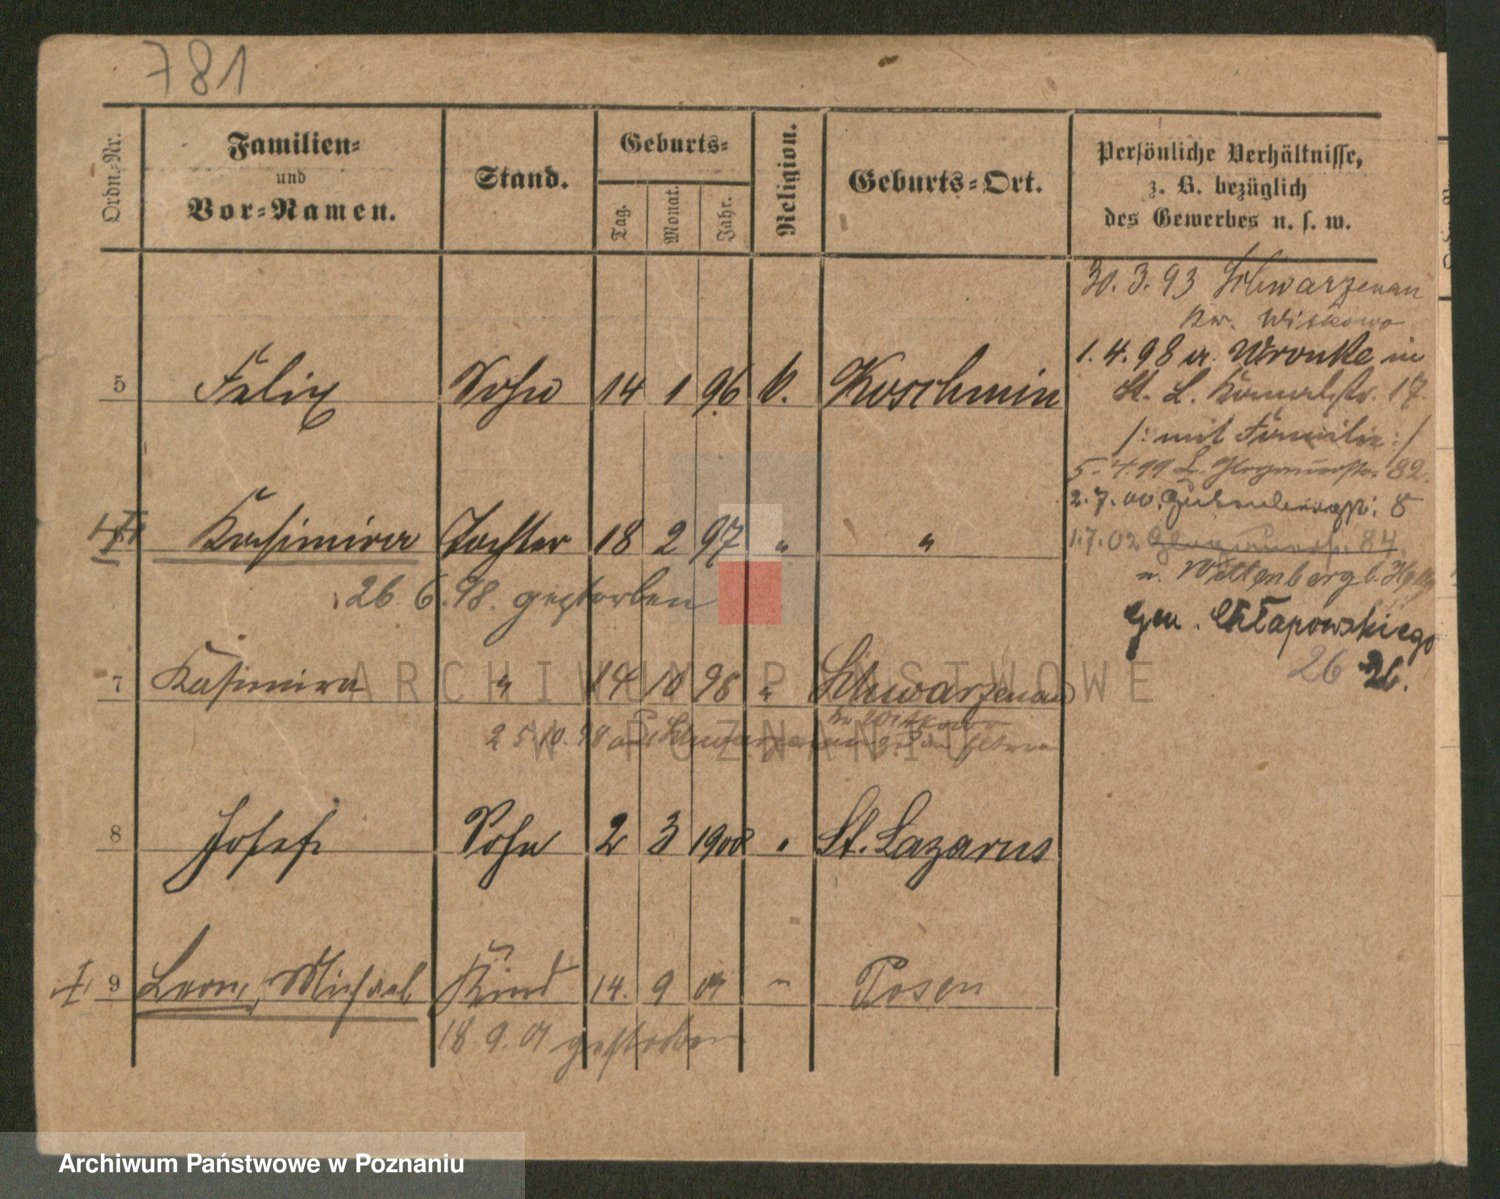 781
Ordn.-Nr.
Familien-
und
Vor-Namen.
Stand.
Geburts-
Tag.
Monat.
Jahr.
Religion.
Geburts-Ort.
Persönliche Verhältnisse,
z. B. bezüglich
des Gewerbes u. s. w.
30. 3. 93 Schwarzenau
Kr. Witkowo
1. 4. 98 a. Wronke in
St. L. 17.
/: mit Familie :/
5 Felix Sohn 14 1 96 k. Koschmin
5. 4. 99 L. Glogauerstr. 82.
2. 7. 00. Gutenbergstr. 8
Kasimira Tochter 18 2 97 " "
1.7.02 Glogauerstr. 84.
26. 6. 98. gestorben
u. Wittenbergb.
Gen. Chłapowskiego
26 26.
7 Kasimira " 14 10 98 " Schwarzenau
Kr. Witkowo
25.10.98 aus Schwarzenau
8 Josef Sohn 2 3 1900 " St. Lazarus
9 Leon, Michael Kind 14. 9 01 " Posen
18 9. 01 gestorben
ARCHIWUM PAŃSTWOWE
W POZNANIU
Archiwum Państwowe w Poznaniu